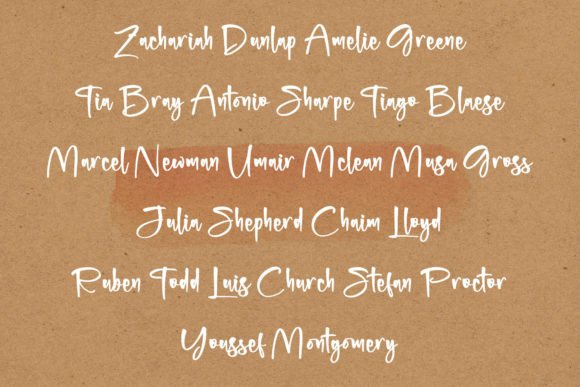 Zachariah Dunlap Amelie Greene
Tia Bray Antonio Sharpe Tiago Blaese
Marcel Newman Umair Mclean Musa Gross
Julia Shepherd Chaim Lloyd
Ruben Todd Luis Church Stefan Proctor
Youssef Montgomery